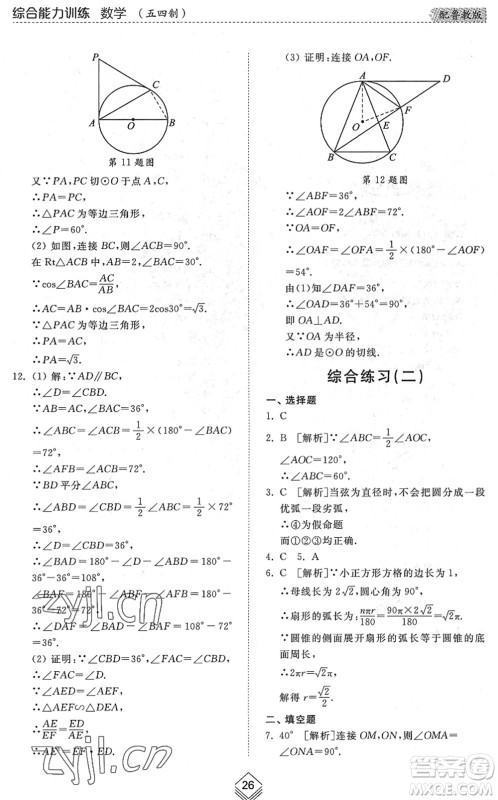 综合能力训练 数学 （五四制）
配鲁教版
P
C
A
O
B
第 11 题图
又∵PA,PC 切⊙O 于点 A,C,
∴PA=PC.
∴△PAC 为等边三角形,
∴∠P=60°.
(2) 如图,连接 BC,则∠ACB=90°.
在 Rt△ACB 中,AB=2,∠BAC=30°,
∵cos∠BAC=AC/AB,
∴AC=AB·cos∠BAC=2cos30°=√3.
∵△PAC 为等边三角形,
∴PA=AC,
∴PA=√3.
12. (1) 解:∵AD∥BC,
∴∠D=∠CBD=36°,
∴∠ABC=∠ACB=1/2×(180°-∠BAC)
=72°,
∴∠AFB=∠ACB=72°.
∵BD 平分∠ABC,
∴∠ABF=∠CBD=1/2∠ABC=1/2×72°
=36°.
∴∠D=∠CBD=36°,
∴∠BAD=180°-∠D-∠ABD=180°-
36°-36°=108°,
∠BAF=180°-∠ABF-∠AFB=180°-
36°-72°=72°.
∴∠DAF=∠BAD-∠BAF=108°-72°
=36°.
(2) 证明:∵∠CBD=36°,∠FAC=∠CBD,
∴∠FAC=36°=∠D.
∵∠AED=∠AEF,
∴△AEF∽△DEA,
∴AE/EF=ED/AE,
∴AE²=EF·ED.
(3) 证明:连接 OA,OF.
A
D
F
O
E
B
C
第 12 题图
∵∠ABF=36°,
∴∠AOF=2∠ABF=72°.
∵OA=OF,
∴∠OAF=∠OFA=1/2×(180°-∠AOF)
=54°.
由(1)知∠DAF=36°,
∴∠OAD=36°+54°=90°,
即 OA⊥AD.
又∵OA 为半径,
∴AD 是⊙O 的切线.
综合练习(二)
一、选择题
1. C
2. B [解析]∵∠ABC=1/2∠AOC,
∠AOC=120°,
∴∠ABC=60°.
3. C [解析]当弦为直径时,不会同时对一段
优弧一段劣弧,
∴④为假命题
而①②③均正确.
4. C 5. A
6. C [解析]∵小正方形方格的边长为 1,
∴母线长为 2√2,圆心角为 90°,
∴扇形的弧长为:nπr/180=90π×2√2/180=√2π.
∵圆锥的侧面展开扇形的弧长等于圆锥的
底面周长,
∴2πr=√2π,
解得 r=√2/2.
二、填空题
7. 40° [解析]连接 OM,ON,则∠OMA=
∠ONA=90°.
zyjl.cn
zyjl.cn
26